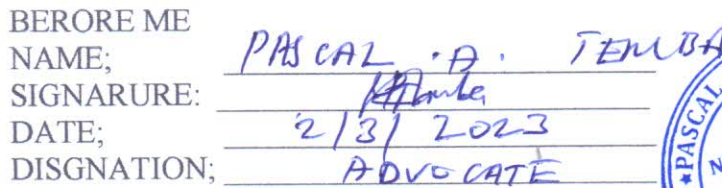 BERORE ME
NAME; PASCAL .A. TEMBA
SIGNARURE:
DATE; 2/3/2023
DISGNATION; ADVOCATE
★PASCAL